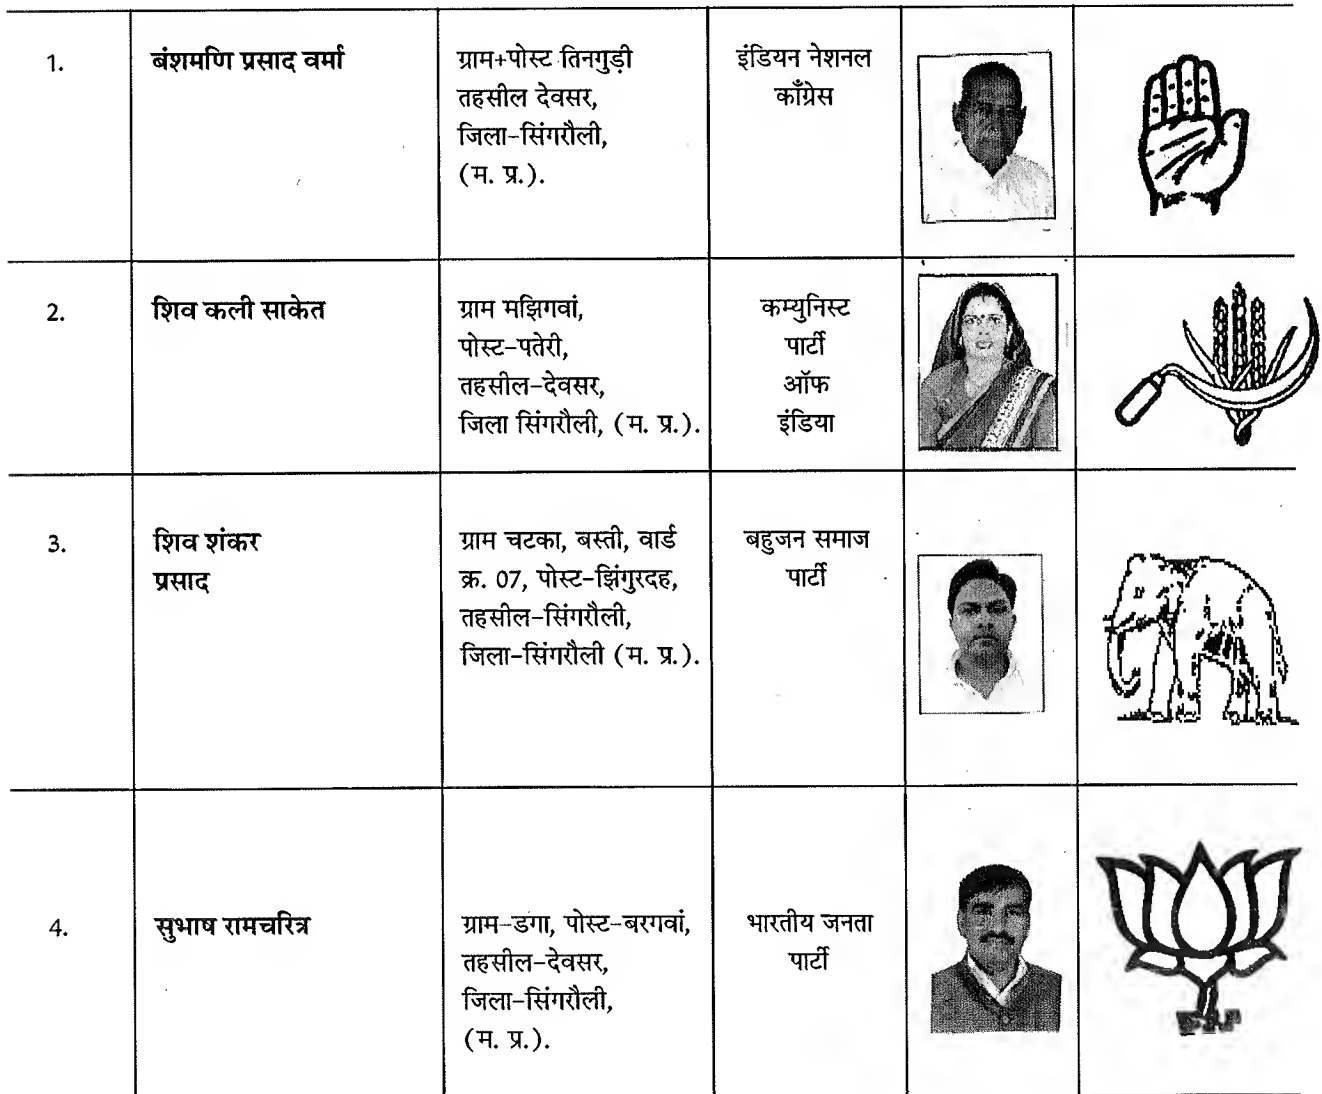 1.
बंशमणि प्रसाद वर्मा
ग्राम+पोस्ट तिनगुड़ी
तहसील देवसर,
जिला-सिंगरौली,
(म. प्र.).
इंडियन नेशनल
काँग्रेस
2.
शिव कली साकेत
ग्राम मझिगवां,
पोस्ट-पतेरी,
तहसील-देवसर,
जिला सिंगरौली, (म. प्र.).
कम्युनिस्ट
पार्टी
ऑफ
इंडिया
3.
शिव शंकर
प्रसाद
ग्राम चटका, बस्ती, वार्ड
क्र. 07, पोस्ट-झिंगुरदह,
तहसील-सिंगरौली,
जिला-सिंगरौली (म. प्र.).
बहुजन समाज
पार्टी
4.
सुभाष रामचरित्र
ग्राम-डगा, पोस्ट-बरगवां,
तहसील-देवसर,
जिला-सिंगरौली,
(म. प्र.).
भारतीय जनता
पार्टी